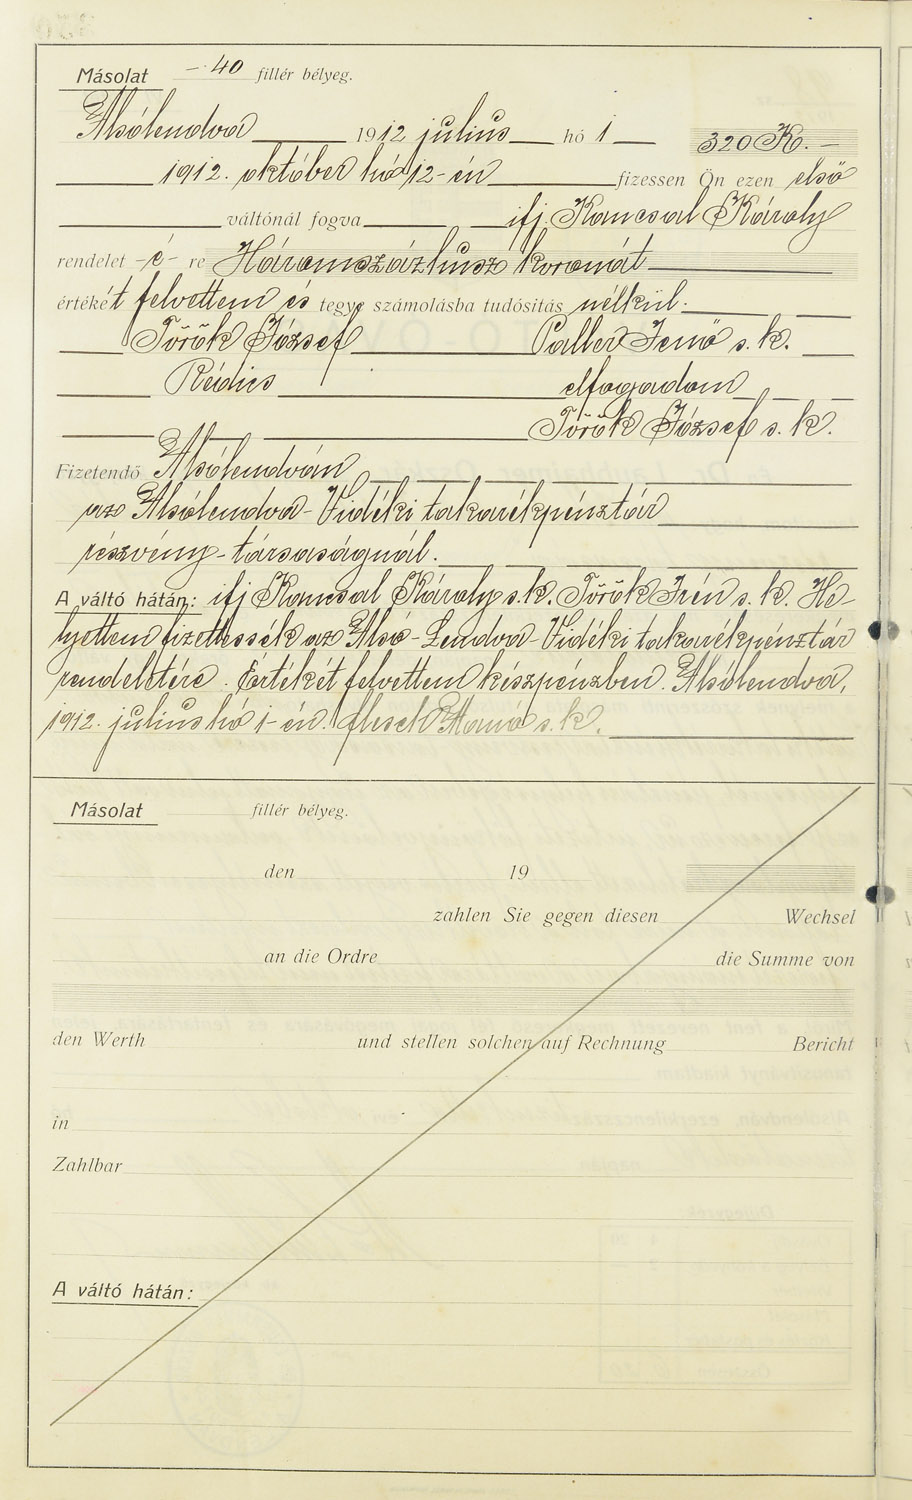 Másolat -·40 fillér bélyeg.
Alsólendva 1912 július hó 1 320 K. -
1912. október hó 12-én fizessen Ön ezen első
váltónál fogva ifj. Kancsal Károly
rendelet -é- re Háromszázhúsz koronát
értékét felvettem és tegye számolásba tudósitás nélkül.
Török József Paller Jenő s. k.
Rédics elfogadom
Török József s. k.
Fizetendő Alsólendván
az Alsólendva-Vidéki takarékpénztár
részvény-társaságnál.
A váltó hátán: ifj Kancsal Károly s.k. Török Irén s. k. He-
lyettem fizettessék az Alsó-Lendva-Vidéki takarékpénztár
rendeletére. Értékét felvettem készpénzben. Alsólendva,
1912. július hó 1-én. s. k.
Másolat fillér bélyeg.
den 19
zahlen Sie gegen diesen Wechsel
an die Ordre die Summe von
den Werth und stellen solchen auf Rechnung Bericht
in
Zahlbar
A váltó hátán: